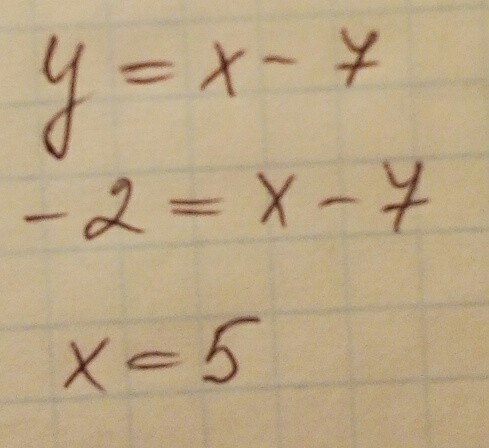 y = x - 7
- 2 = x - 7
x = 5